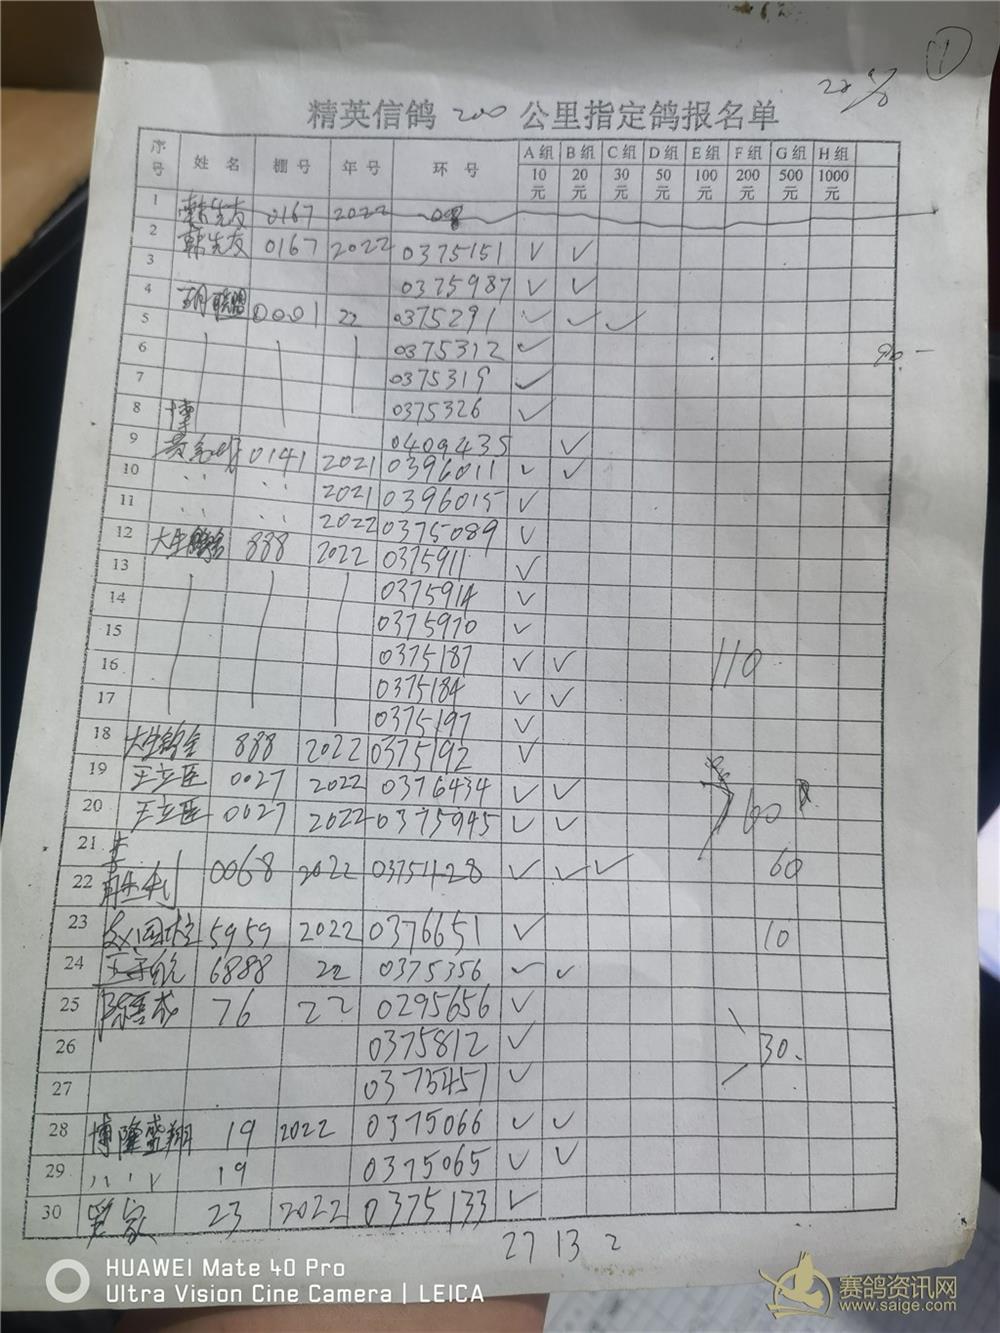 ①
精英信鸽 200 公里指定鸽报名单
序号 姓名 棚号 年号 环号 A组 10元 B组 20元 C组 30元 D组 50元 E组 100元 F组 200元 G组 500元 H组 1000元
1 韩先友 0167 2022
2 韩先友 0167 2022 0375151 ✓ ✓
3 0375987 ✓ ✓
4 联盟 0001 22 0375291 ✓ ✓ ✓
5
6 0375312 ✓
90.—
7 0375319 ✓
8 0375326 ✓
9 0409435 ✓
0141 2021 0396011 ✓ ✓
10 2021 0396015 ✓
11 2022 0375089 ✓
12 大生 888 2022 0375911 ✓
13 0375914 ✓
14 0375970 ✓
15 0375187 ✓ ✓
110
16 0375184 ✓ ✓
17 0375197 ✓
18 大生 888 2022 0375192 ✓
19 王立臣 0027 2022 0376434 ✓ ✓
20 王立臣 0027 2022 0375945 ✓ ✓
60
21
22 0068 2022 03751128 ✓ ✓ ✓ 60
23 5959 2022 0376651 ✓ 10
24 6888 22 0375356 ✓ ✓
25 76 22 0295656 ✓
26 0375812 ✓ 30.
27 0375451 ✓
28 博隆盛翔 19 2022 0375066 ✓ ✓
29 〃 19 0375065 ✓ ✓
30 家 23 2022 0375133 ✓
27 13 2
HUAWEI Mate 40 Pro
Ultra Vision Cine Camera | LEICA
赛鸽资讯网
www.saige.com